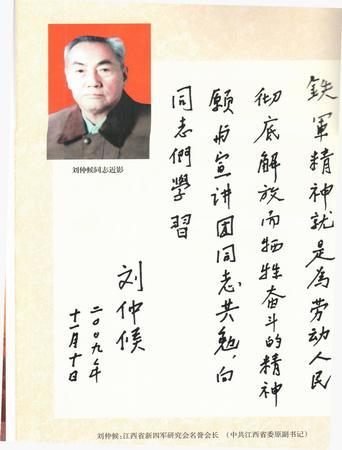 鉄軍精神就是為劳动人民
彻底解放而牺牲奋斗的精神
願与宣讲团同志共勉,向
同志們學習
刘仲候
二00九年
十一月十日
刘仲候同志近影
刘仲候:江西省新四军研究会名誉会长 (中共江西省委原副书记)